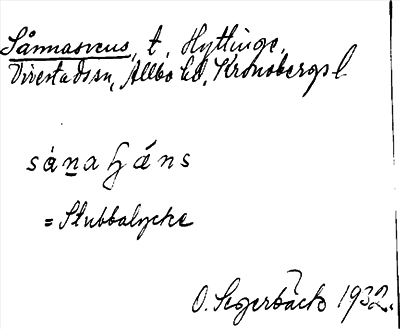 Sånnasvens, t. Hyttinge,
Virestads sn, Allbo hd, Kronobergs l
sånasvǽns
= Stubbalycke
O. Segerbäck 1932.